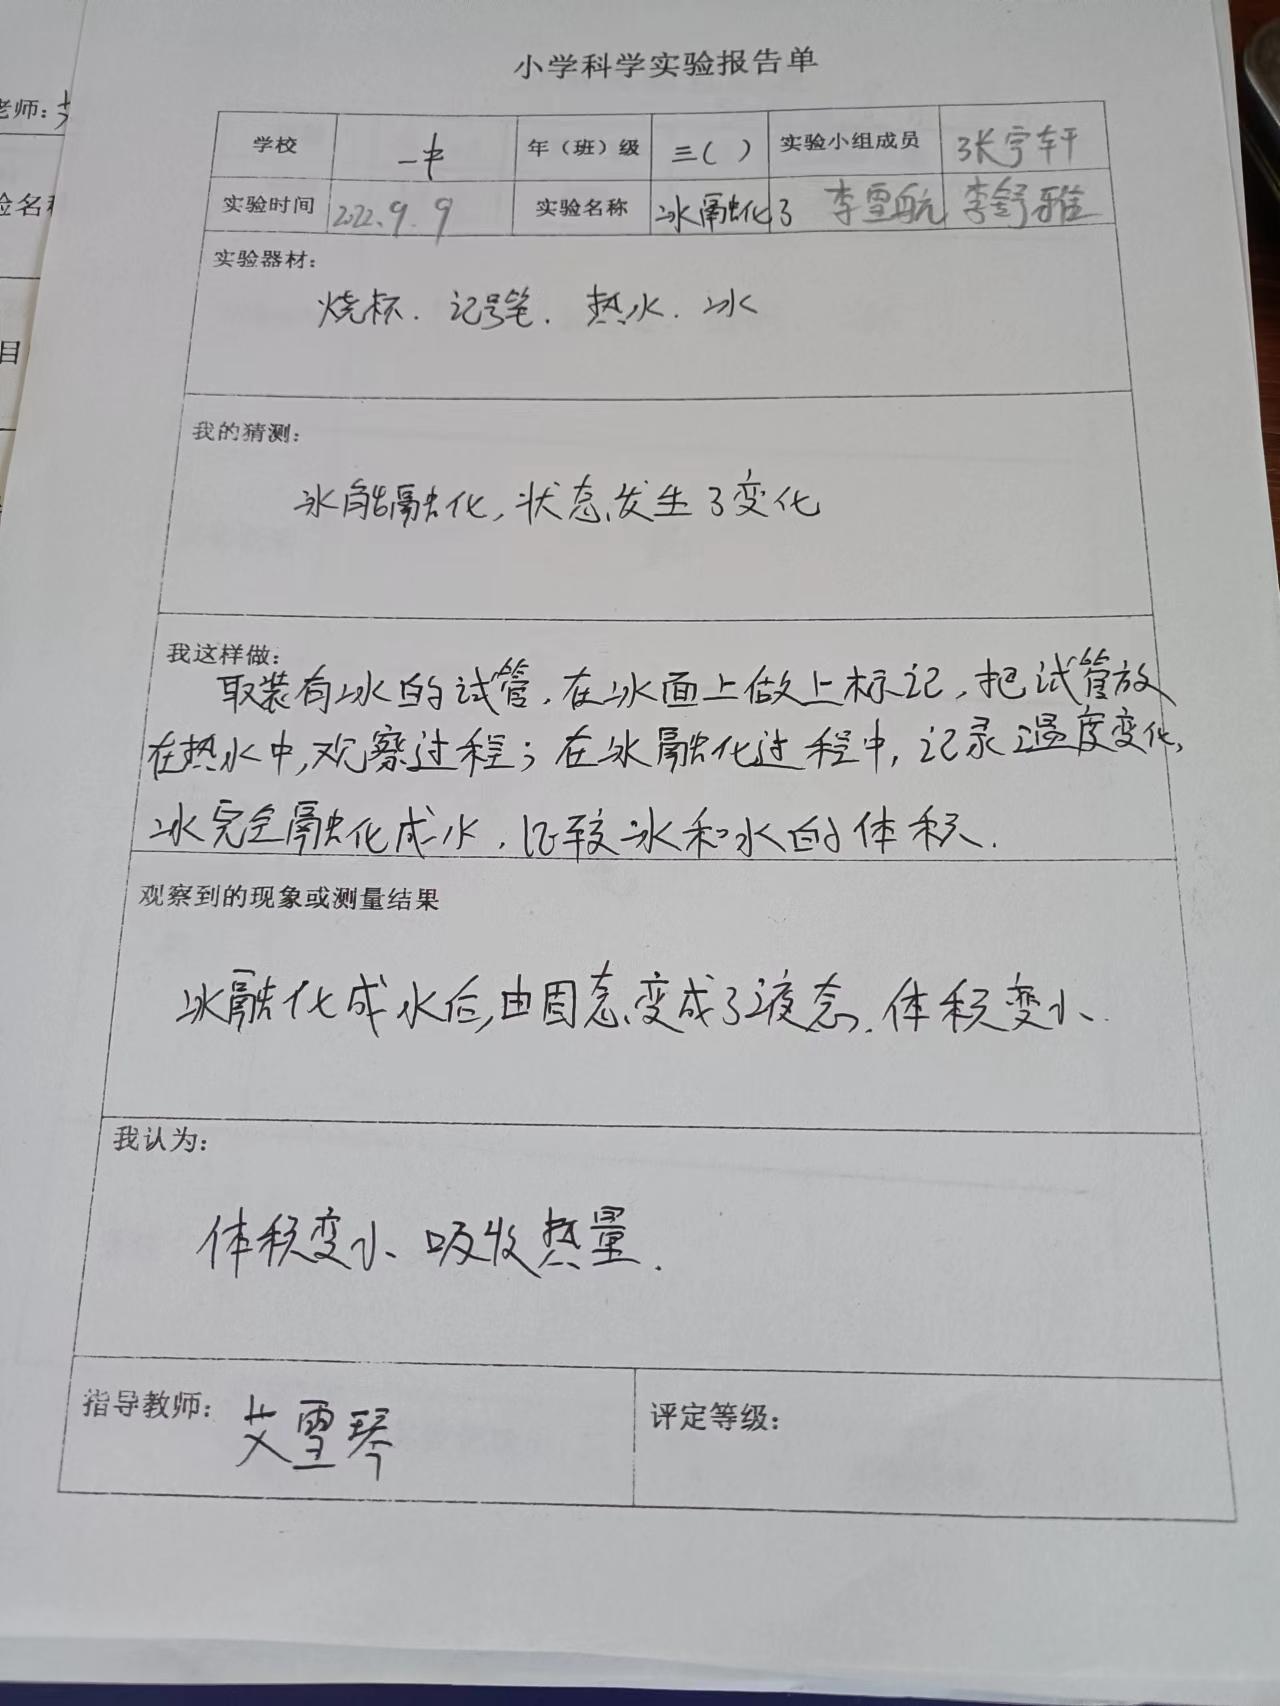 小学科学实验报告单
老师:
学校 一中 年（班）级 三( ) 实验小组成员 张宇轩
实验时间 2022.9.9 实验名称 冰融化了 李雪航 李舒雅
实验器材:
烧杯. 记号笔. 热水. 冰
目
我的猜测:
冰能融化,状态发生了变化
我这样做:
取装有冰的试管,在冰面上做上标记,把试管放
在热水中,观察过程;在冰融化过程中,记录温度变化,
冰完全融化成水,比较冰和水的体积.
观察到的现象或测量结果
冰融化成水后,由固态变成了液态.体积变小.
我认为:
体积变小、吸收热量.
指导教师: 艾雪琴 评定等级: